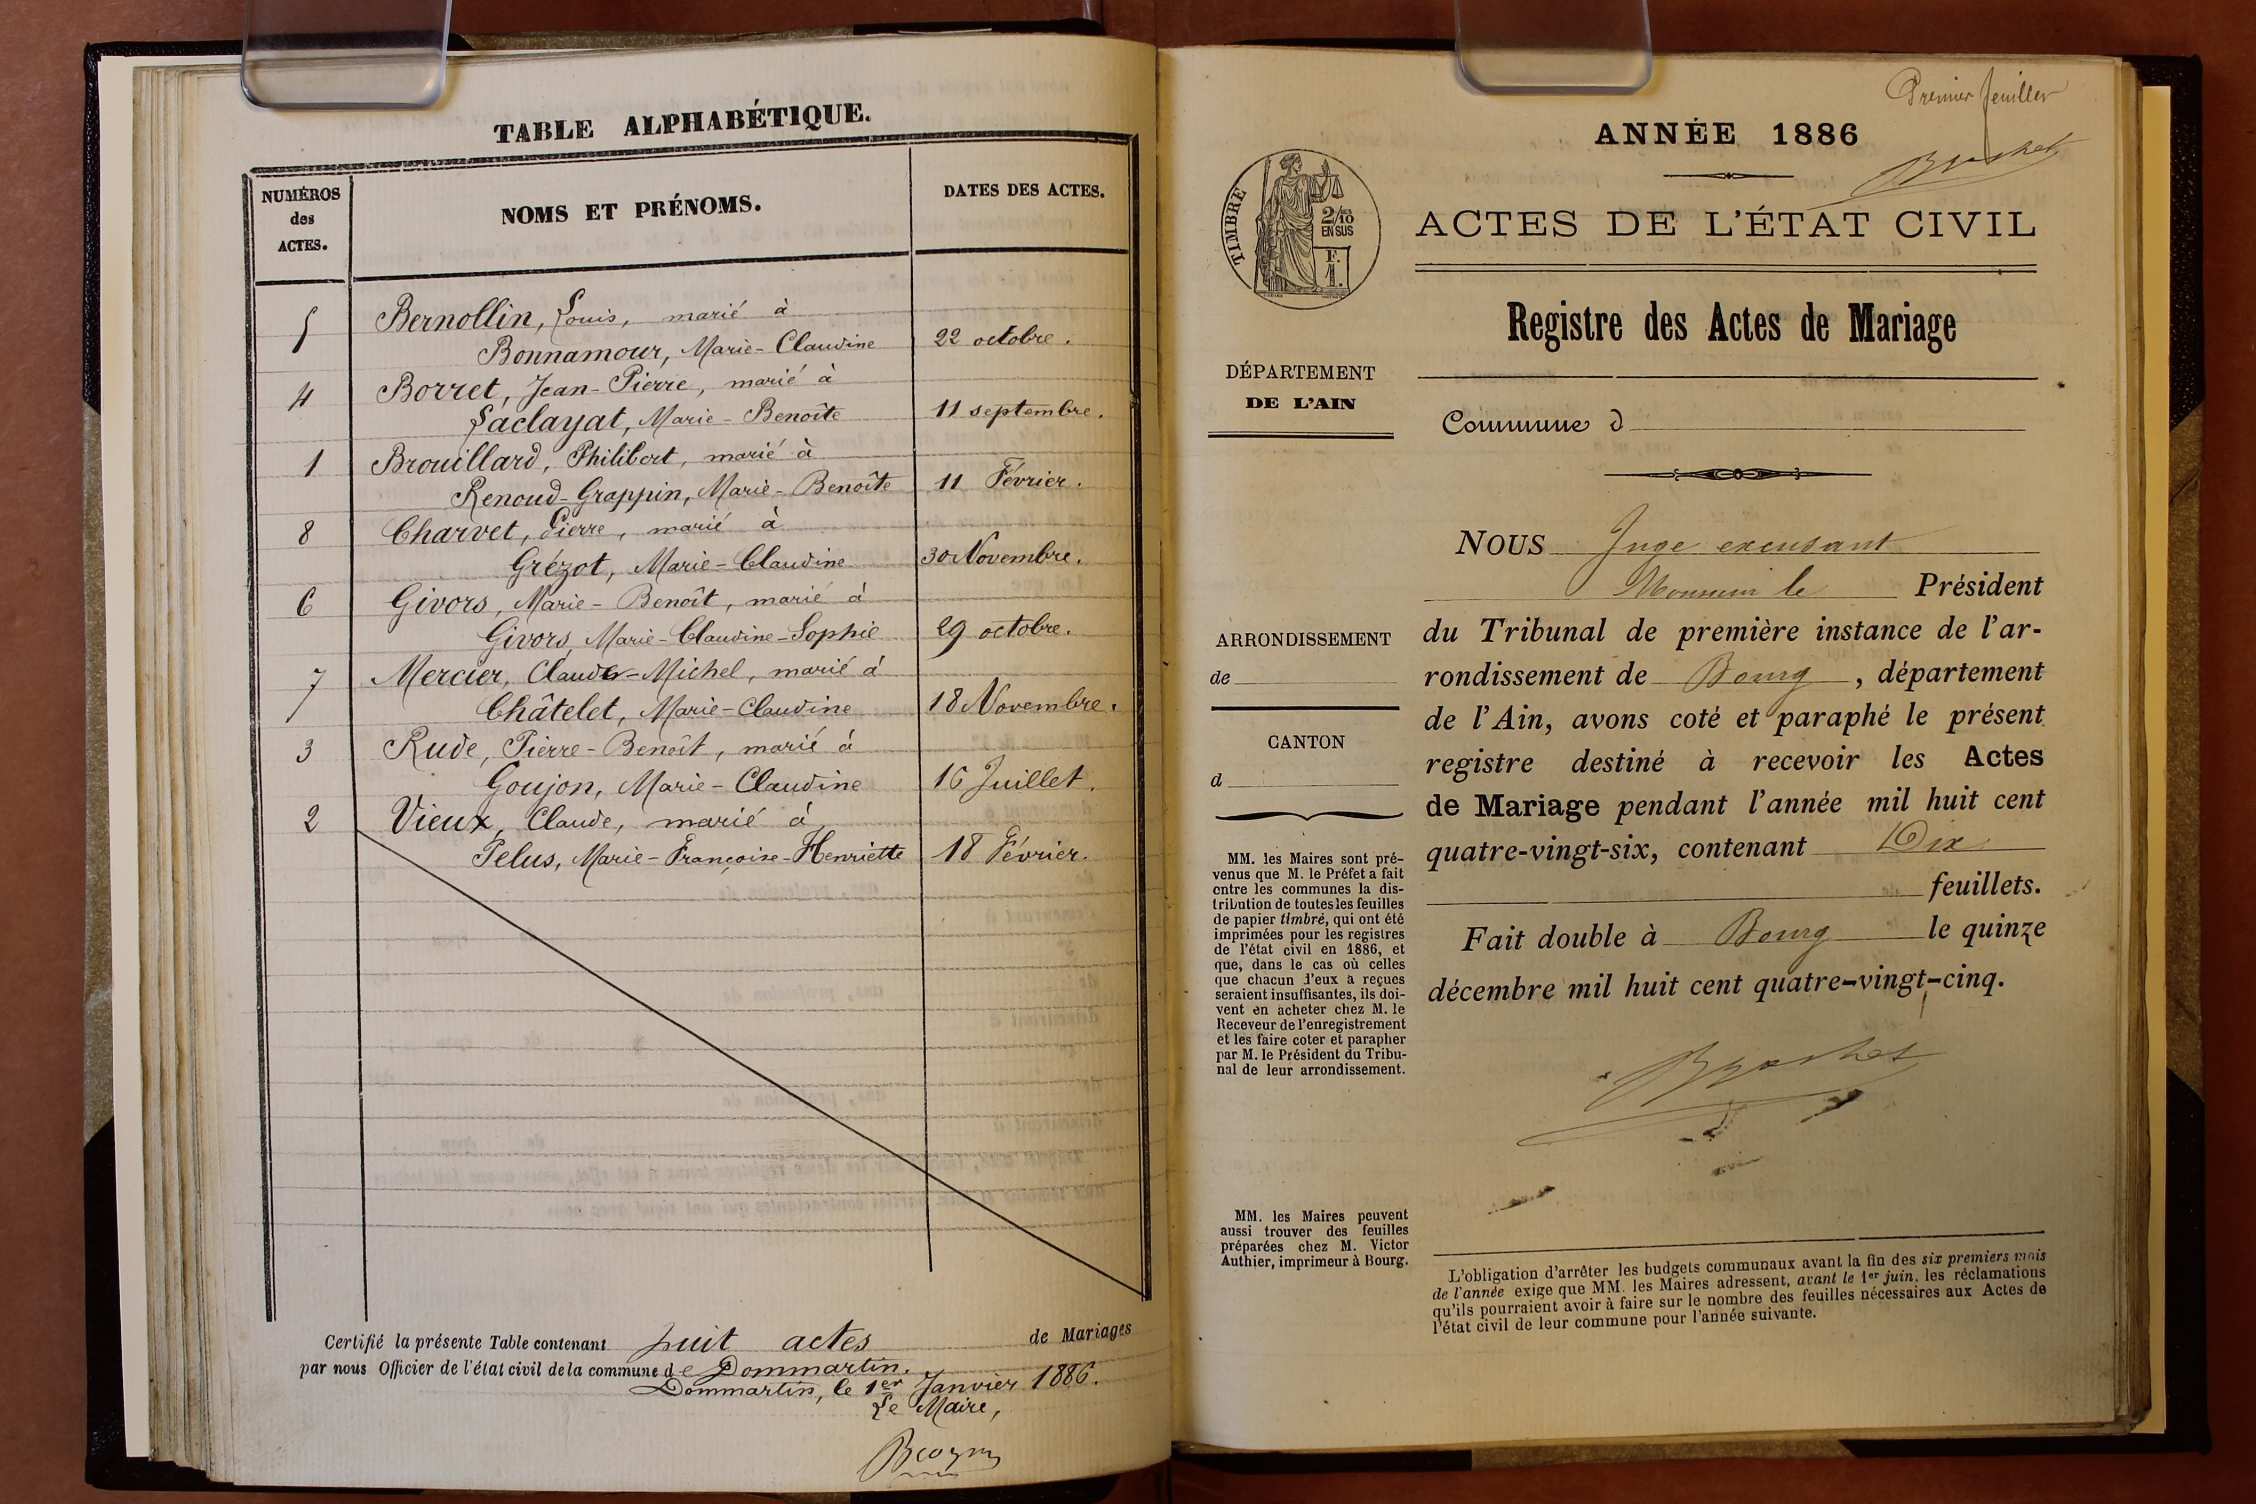 TABLE ALPHABÉTIQUE.
NUMÉROS
des
ACTES.
NOMS ET PRÉNOMS.
DATES DES ACTES.
5 Bernollin, Louis, marié à
Bonnamour, Marie-Claudine 22 octobre.
4 Borret, Jean-Pierre, marié à
Laclayat, Marie-Benoîte 11 septembre.
1 Brouillard, Philibert, marié à
Renoud-Grappin, Marie-Benoîte 11 Février.
8 Charvet, Pierre, marié à
Grézot, Marie-Claudine 30 Novembre.
6 Givors, Marie-Benoît, marié à
Givors, Marie-Claudine-Sophie 29 octobre.
7 Mercier, Claude-Michel, marié à
Châtelet, Marie-Claudine 18 Novembre.
3 Rude, Pierre-Benoît, marié à
Goujon, Marie-Claudine 16 Juillet.
2 Vieux, Claude, marié à
Pelus, Marie-Françoise-Henriette 18 Février.
Certifié la présente Table contenant huit actes de Mariages
par nous Officier de l'état civil de la commune de Dommartin.
Dommartin, le 1er Janvier 1886.
Le Maire,
Premier feuillet
ANNÉE 1886
Brochet
TIMBRE
2/10
EN SUS
F.
1.
ACTES DE L'ÉTAT CIVIL
Registre des Actes de Mariage
DÉPARTEMENT
DE L'AIN
Commune d
NOUS Juge excusant
Monsieur le Président
du Tribunal de première instance de l'ar-
rondissement de Bourg, département
de l'Ain, avons coté et paraphé le présent
registre destiné à recevoir les Actes
de Mariage pendant l'année mil huit cent
quatre-vingt-six, contenant Dix
feuillets.
Fait double à Bourg le quinze
décembre mil huit cent quatre-vingt-cinq.
Brochet
ARRONDISSEMENT
de
CANTON
d
MM. les Maires sont pré-
venus que M. le Préfet a fait
entre les communes la dis-
tribution de toutes les feuilles
de papier timbré, qui ont été
imprimées pour les registres
de l'état civil en 1886, et
que, dans le cas où celles
que chacun d'eux a reçues
seraient insuffisantes, ils doi-
vent en acheter chez M. le
Receveur de l'enregistrement
et les faire coter et parapher
par M. le Président du Tribu-
nal de leur arrondissement.
MM. les Maires peuvent
aussi trouver des feuilles
préparées chez M. Victor
Authier, imprimeur à Bourg.
L'obligation d'arrêter les budgets communaux avant la fin des six premiers mois
de l'année exige que MM. les Maires adressent, avant le 1er juin, les réclamations
qu'ils pourraient avoir à faire sur le nombre des feuilles nécessaires aux Actes de
l'état civil de leur commune pour l'année suivante.